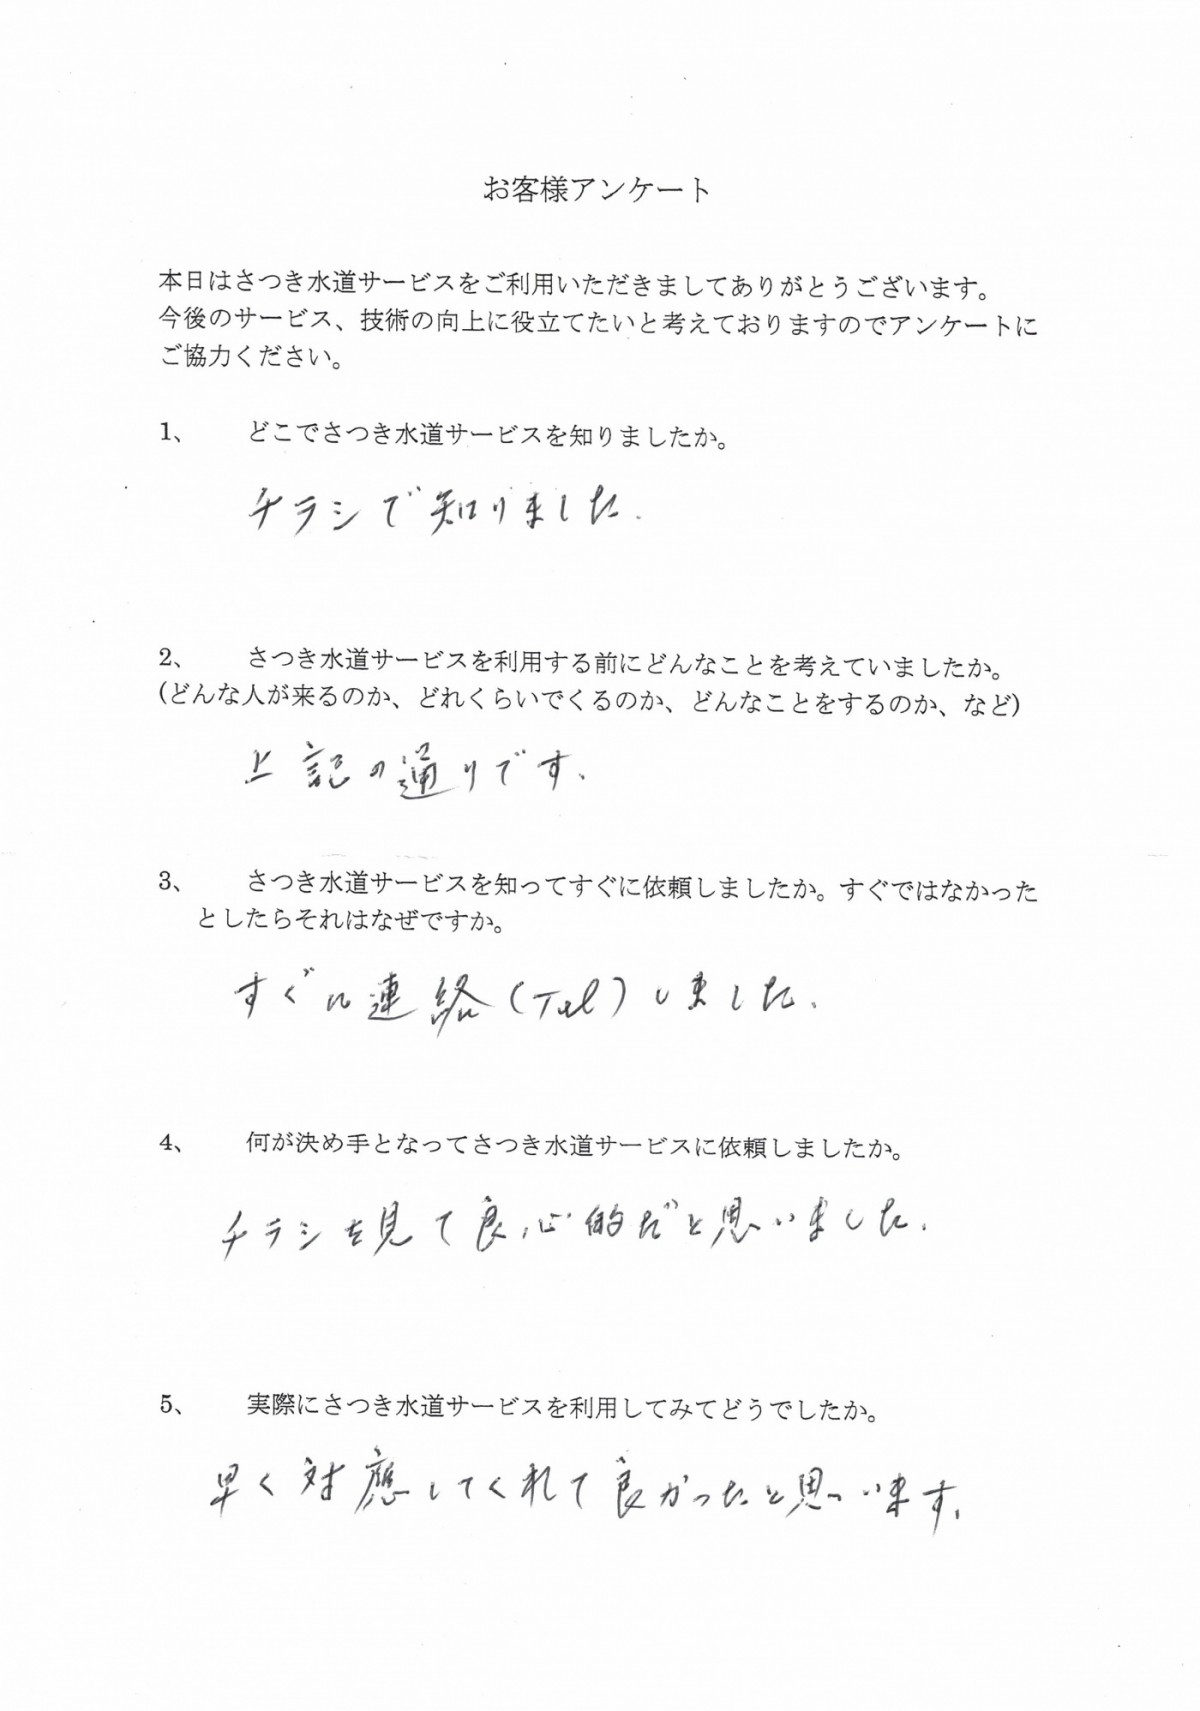 お客様アンケート
本日はさつき水道サービスをご利用いただきましてありがとうございます。
今後のサービス、技術の向上に役立てたいと考えておりますのでアンケートに
ご協力ください。
1、 どこでさつき水道サービスを知りましたか。
チラシで知りました.
2、 さつき水道サービスを利用する前にどんなことを考えていましたか。
(どんな人が来るのか、どれくらいでくるのか、どんなことをするのか、など)
上記の通りです.
3、 さつき水道サービスを知ってすぐに依頼しましたか。すぐではなかった
としたらそれはなぜですか。
すぐに連絡(Tel)しました.
4、 何が決め手となってさつき水道サービスに依頼しましたか。
チラシを見て良心的だと思いました.
5、 実際にさつき水道サービスを利用してみてどうでしたか。
早く対應してくれて良かったと思います.